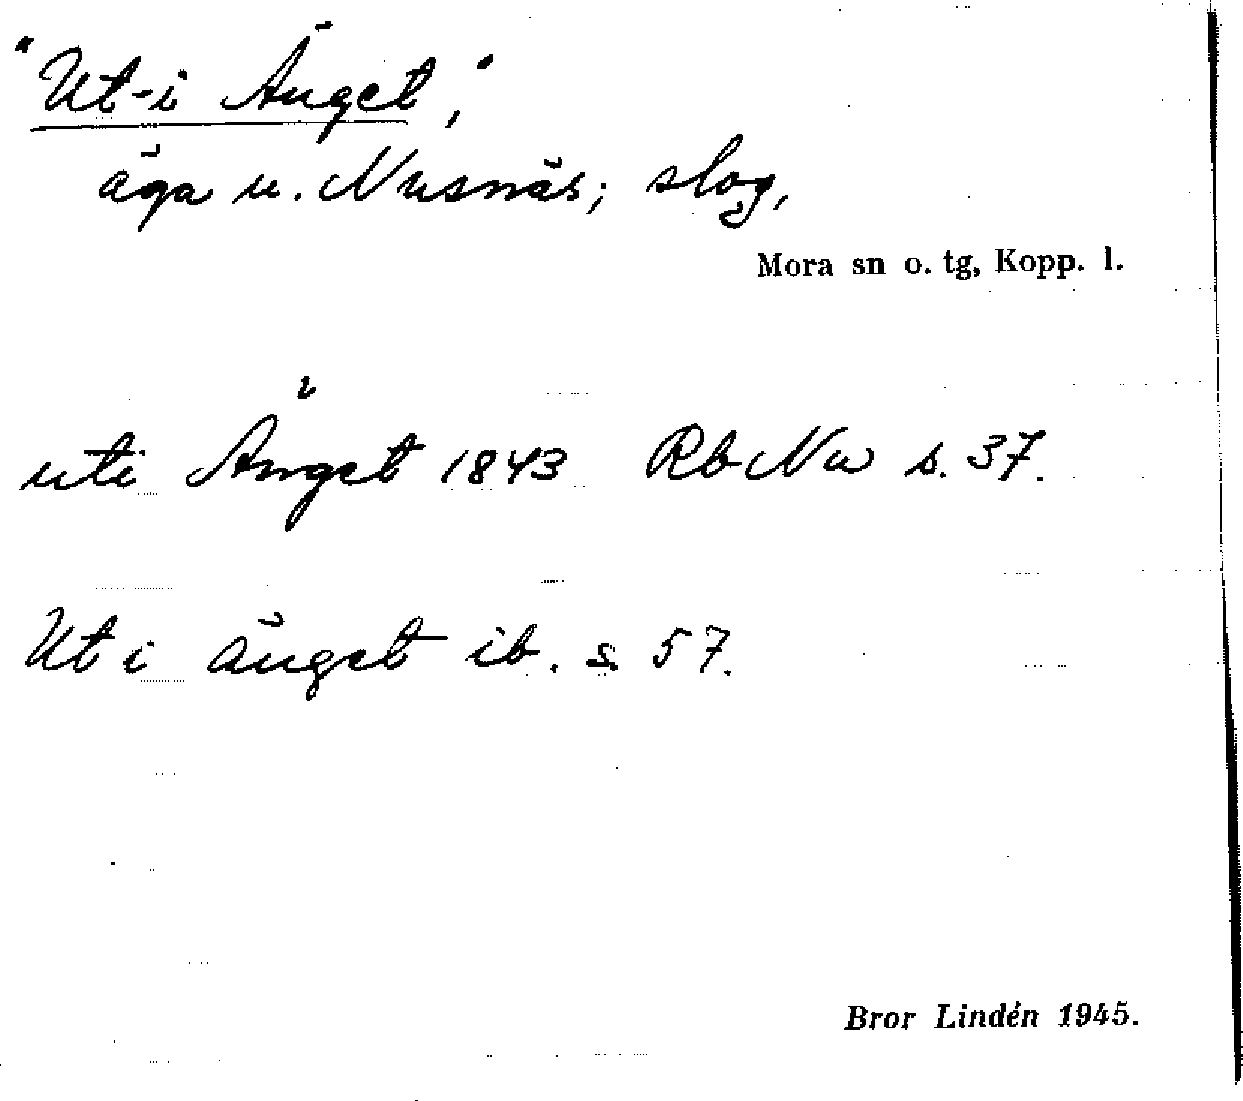 "Ut-i Änget,"
äga u. Nusnäs; slog,
Mora sn o. tg, Kopp. l.
uti Änget 1843 Rb Nu s. 37.
Ut i änget ib. s 57.
Bror Lindén 1945.